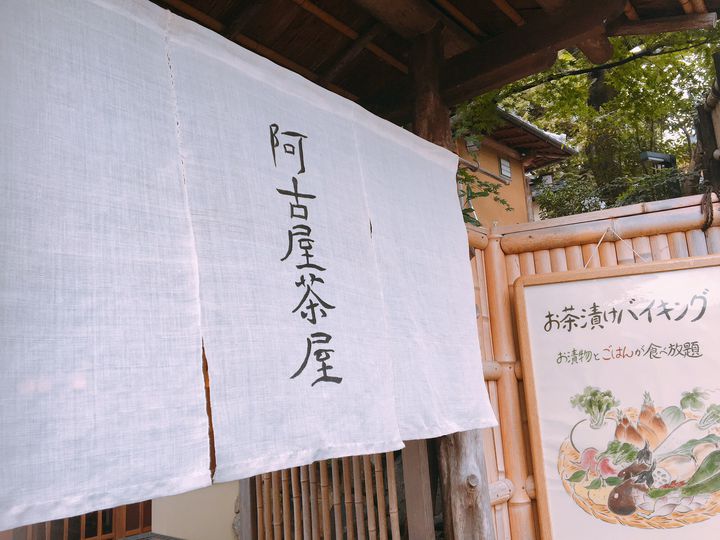 阿古屋茶屋
お茶漬けバイキング
お漬物とごはんが食べ放題